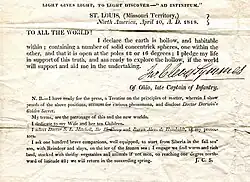 LIGHT GIVES LIGHT, TO LIGHT DISCOVER—"AD INFINITUM."
ST. LOUIS, (Missouri Territory,)
North America, April 10, A. D. 1818.
TO ALL THE WORLD!
I declare the earth is hollow, and habitable
within; containing a number of solid concentrick spheres, one within the
other, and that it is open at the poles 12 or 16 degrees; I pledge my life
in support of this truth, and am ready to explore the hollow, if the
world will support and aid me in the undertaking.
Jno. Cleves Symmes
Of Ohio, late Captain of Infantry.
N. B.—I have ready for the press, a Treatise on the principles of matter, wherein I show
proofs of the above positions, account for various phenomena, and disclose Doctor Darwin's
Golden Secret.
My terms, are the patronage of this and the new worlds.
I dedicate to my Wife and her ten Children.
I select Doctor S. L. Mitchell, Sir H. Davy and Baron Alex. de Humboldt, as my protectors.
I ask one hundred brave companions, well equipped, to start from Siberia in the fall season,
with Reindeer and slays, on the ice of the frozen sea: I engage we find warm and rich
land, stocked with thrifty vegetables and animals if not men, on reaching one degree northward
of latitude 82; we will return in the succeeding spring.
J. C. S.